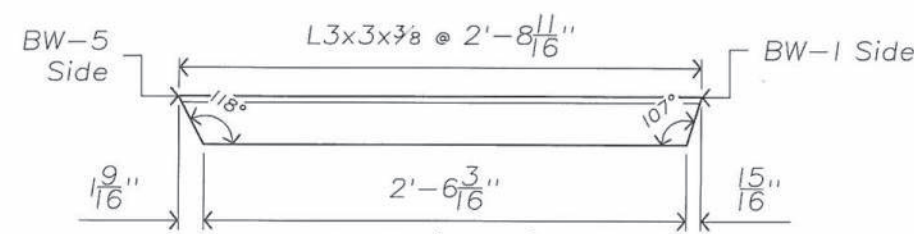 BW-5
Side
L3x3x3/8 @ 2'-8 11/16"
BW-1 Side
118°
107°
1 9/16"
2'-6 3/16"
15/16"